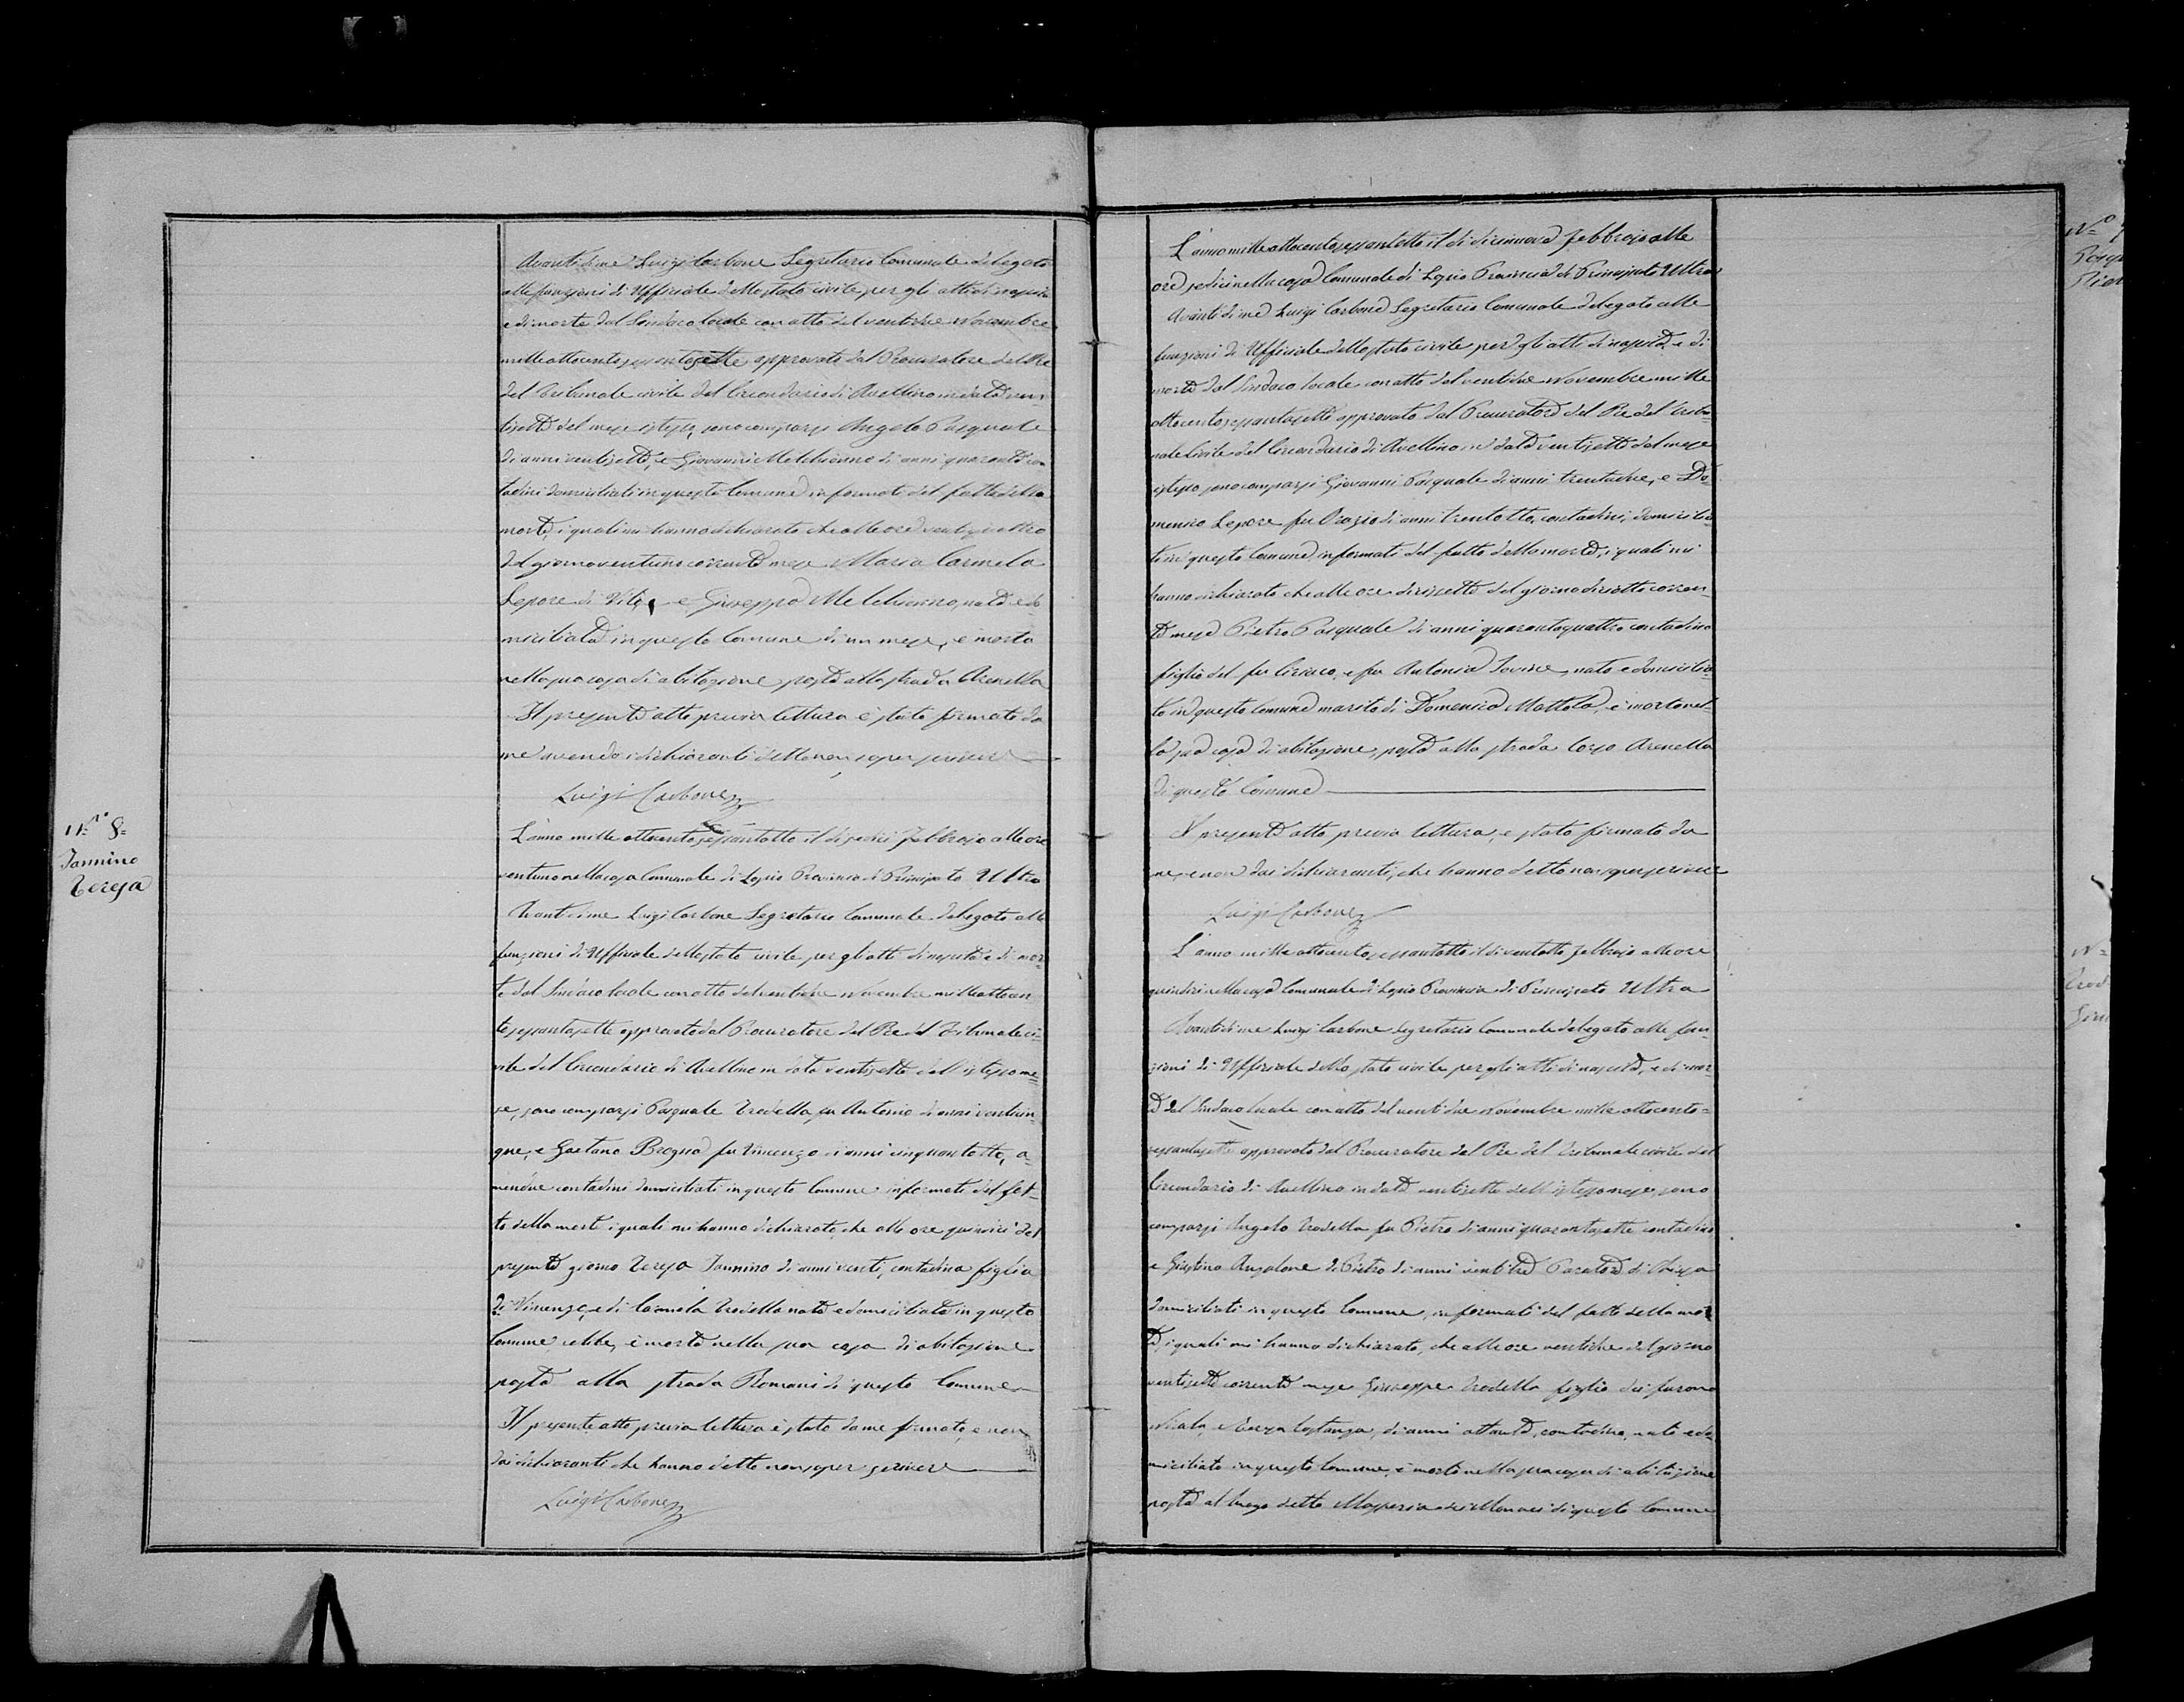 Avanti di me Luigi Carbone Segretario Comunale delegato
alle funzioni di Uffiziale dello stato civile per gli atti di nascita
e di morte dal Sindaco locale con atto del ventidue Novembre
mille ottocento sessantasette approvato dal Procuratore del Re
del Tribunale civile del Circondario di Avellino in data ven-
tisette del mese istesso, sono comparsi Angelo Pasquale
di anni ventisette, e Giovanni Melchionno di anni quaranta con
tadini domiciliati in questo Comune informati del fatto della
morte, i quali mi hanno dichiarato che alle ore ventiquattro
del giorno ventuno corrente mese Maria Carmela
Lepore di Vito e Giuseppa Melchionno, nata e do
miciliata in questo Comune di un mese, è morta
nella sua casa di abitazione posta alla strada Arenella
Il presente atto previa lettura è stato firmato da
me avendo i dichiaranti detto non saper scrivere
Luigi Carbone
N.ro 8=
Iannino
Teresa
L'anno mille ottocento sessantotto il di sedici Febbrajo alle ore
ventuno nella casa Comunale di Lapio Provincia di Principato Ultra
Avanti di me Luigi Carbone Segretario Comunale delegato alle
funzioni di Uffiziale dello stato civile per gli atti di nascita e di mor=
te dal Sindaco locale con atto del ventidue Novembre mille ottocen
to sessantasette approvato dal Procuratore del Re del Tribunale ci=
vile del Circondario di Avellino in data ventisette dell'istesso me=
se, sono comparsi Pasquale Trodella fu Antonio di anni venticin
que, e Gaetano Brogna fu Vincenzo di anni cinquantotto, a=
mendue contadini domiciliati in questo Comune informati del fat=
to della morte i quali mi hanno dichiarato, che alle ore quindici del
presente giorno Teresa Iannino di anni venti, contadina figlia
di Vincenzo, e di Carmela Trodella nata e domiciliata in questo
Comune nubile, è morta nella sua casa di abitazione
posta alla strada Romani di questo Comune
Il presente atto previa lettura è stato da me firmato, e non
dai dichiaranti che hanno detto non saper scrivere
Luigi Carbone
3
L'anno mille ottocento sessantotto il di diciannove Febbrajo alle
ore sedici nella casa Comunale di Lapio Provincia di Principato Ultra
Avanti di me Luigi Carbone Segretario Comunale delegato alle
funzioni di Uffiziale dello stato civile per gli atti di nascita, e di
morte dal Sindaco locale con atto del ventidue Novembre mille
ottocento sessantasette approvato dal Procuratore del Re del Tribu=
nale Civile del Circondario di Avellino in data ventisette del mese
istesso sono comparsi Giovanni Pasquale di anni trentadue, e Do=
menico Lepore fu Orazio di anni trentotto, contadini, domicilia
ti in questo Comune, informati del fatto della morte, i quali mi
hanno dichiarato che alle ore diciassette del giorno diciotto corren=
te mese Pietro Pasquale di anni quarantaquattro contadino
figlio del fu Ciriaco, e fu Antonia Iovine, nato e domicilia=
to in questo comune marito di Domenica Mottola, è morto nel=
la sua casa di abitazione, posta alla strada Corso Arenella
di questo Comune
Il presente atto previa lettura, è stato firmato da
me, e non dai dichiaranti, che hanno detto non saper scrivere
Luigi Carbone
L'anno mille ottocento sessantotto il di ventotto Febbrajo alle ore
quindici nella casa Comunale di Lapio Provincia di Principato Ultra
Avanti di me Luigi Carbone Segretario Comunale delegato alle fun=
zioni di Uffiziale dello stato civile per gli atti di nascita, e di mor=
te dal Sindaco locale con atto del ventidue Novembre mille ottocento=
sessantasette approvato dal Procuratore del Re del Tribunale civile del
Circondario di Avellino in data ventisette dell'istesso mese, sono
comparsi Angelo Trodella fu Pietro di anni quarantasette contadino
e Giustino Anzalone di Pietro di anni ventitre di
domiciliati in questo Comune, informati del fatto della mor
te, i quali mi hanno dichiarato, che alle ore ventidue del giorno
ventisette corrente mese Giuseppe Trodella figlio dei furono
Nicola, e di anni ottanta, contadino, nato e do=
miciliato in questo Comune, è morto nella sua casa di abitazione
posta al luogo detto Masseria dei Monaci di questo Comune
N.o
Pasqu
Piet
N=
Trod
Giu